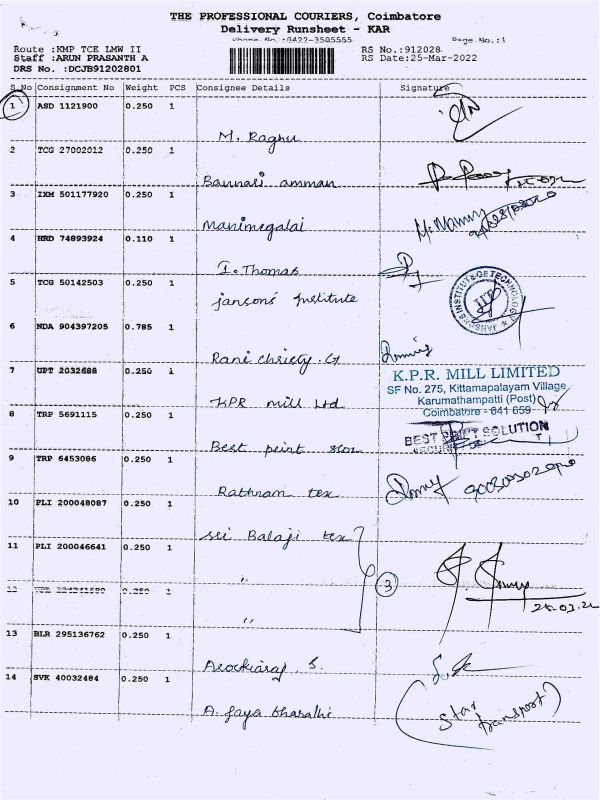 THE PROFESSIONAL COURIERS, Coimbatore
Delivery Runsheet - KAR
Phone No.:0422-3505555 Page No.:1
Route :KMP TCE LMW II RS No.:912028
Staff :ARUN PRASANTH A RS Date:25-Mar-2022
DRS No. :DCJB91202801
S.No Consignment No Weight PCS Consignee Details Signature
1 ASD 1121900 0.250 1
M. Raghu
2 TCG 27002012 0.250 1
Bannari amman
3 IXM 501177920 0.250 1
Manimegalai
4 HRD 74893924 0.110 1
I. Thomas
5 TCG 50142503 0.250 1
jansons Institute
JANSONS INSTITUTE OF TECHNOLOGY
JIT
6 NDA 904397205 0.785 1
Rani christy. G
7 UPT 2032688 0.250 1
K.P.R. MILL LIMITED
SF No. 275, Kittamapalayam Village,
Karumathampatti (Post)
Coimbatore - 641 659
KPR mill Ltd
8 TRP 5691115 0.250 1
BEST PRINT SOLUTION
Best print
9 TRP 6453086 0.250 1
Rathnam tex
10 PLI 200048087 0.250 1
sri Balaji tex
11 PLI 200046641 0.250 1
"
3
12 0.250 1
"
25.03.22
13 BLR 295136762 0.250 1
Arockiaraj S.
14 SVK 40032484 0.250 1
A. Jaya bharathi
(Star
transport)